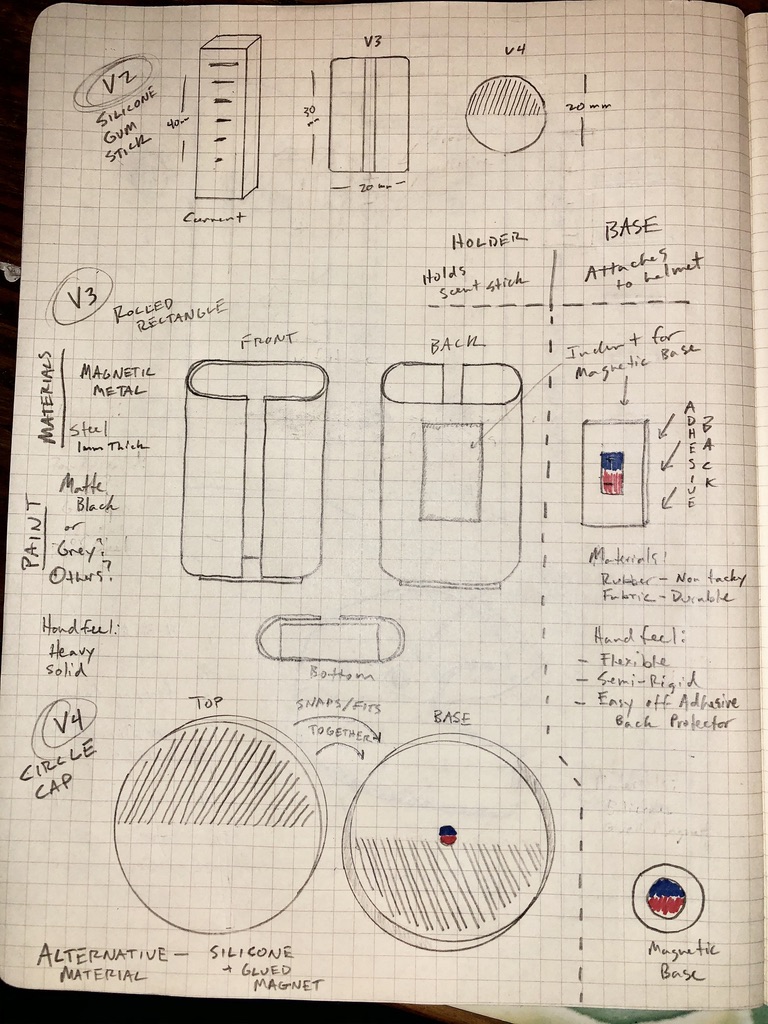 V2
SILICONE
GUM
STICK
40mm
Current
V3
30
mm
20 mm
V4
20 mm
HOLDER
Holds
Scent stick
BASE
Attaches
to helmet
V3
ROLLED
RECTANGLE
MATERIALS
MAGNETIC
METAL
Steel
1mm Thick
PAINT
Matte
Black
or
Grey?
Others?
Hand feel:
Heavy
solid
FRONT
BACK
Indent for
Magnetic Base
ADHESIVE
BACK
Bottom
Materials:
Rubber - Non tacky
Fabric - Durable
Hand feel:
- Flexible
- Semi-Rigid
- Easy off Adhesive
Back Protector
V4
CIRCLE
CAP
TOP
SNAPS/FITS
TOGETHER
BASE
Magnetic
Base
ALTERNATIVE - SILICONE
MATERIAL + GLUED
MAGNET